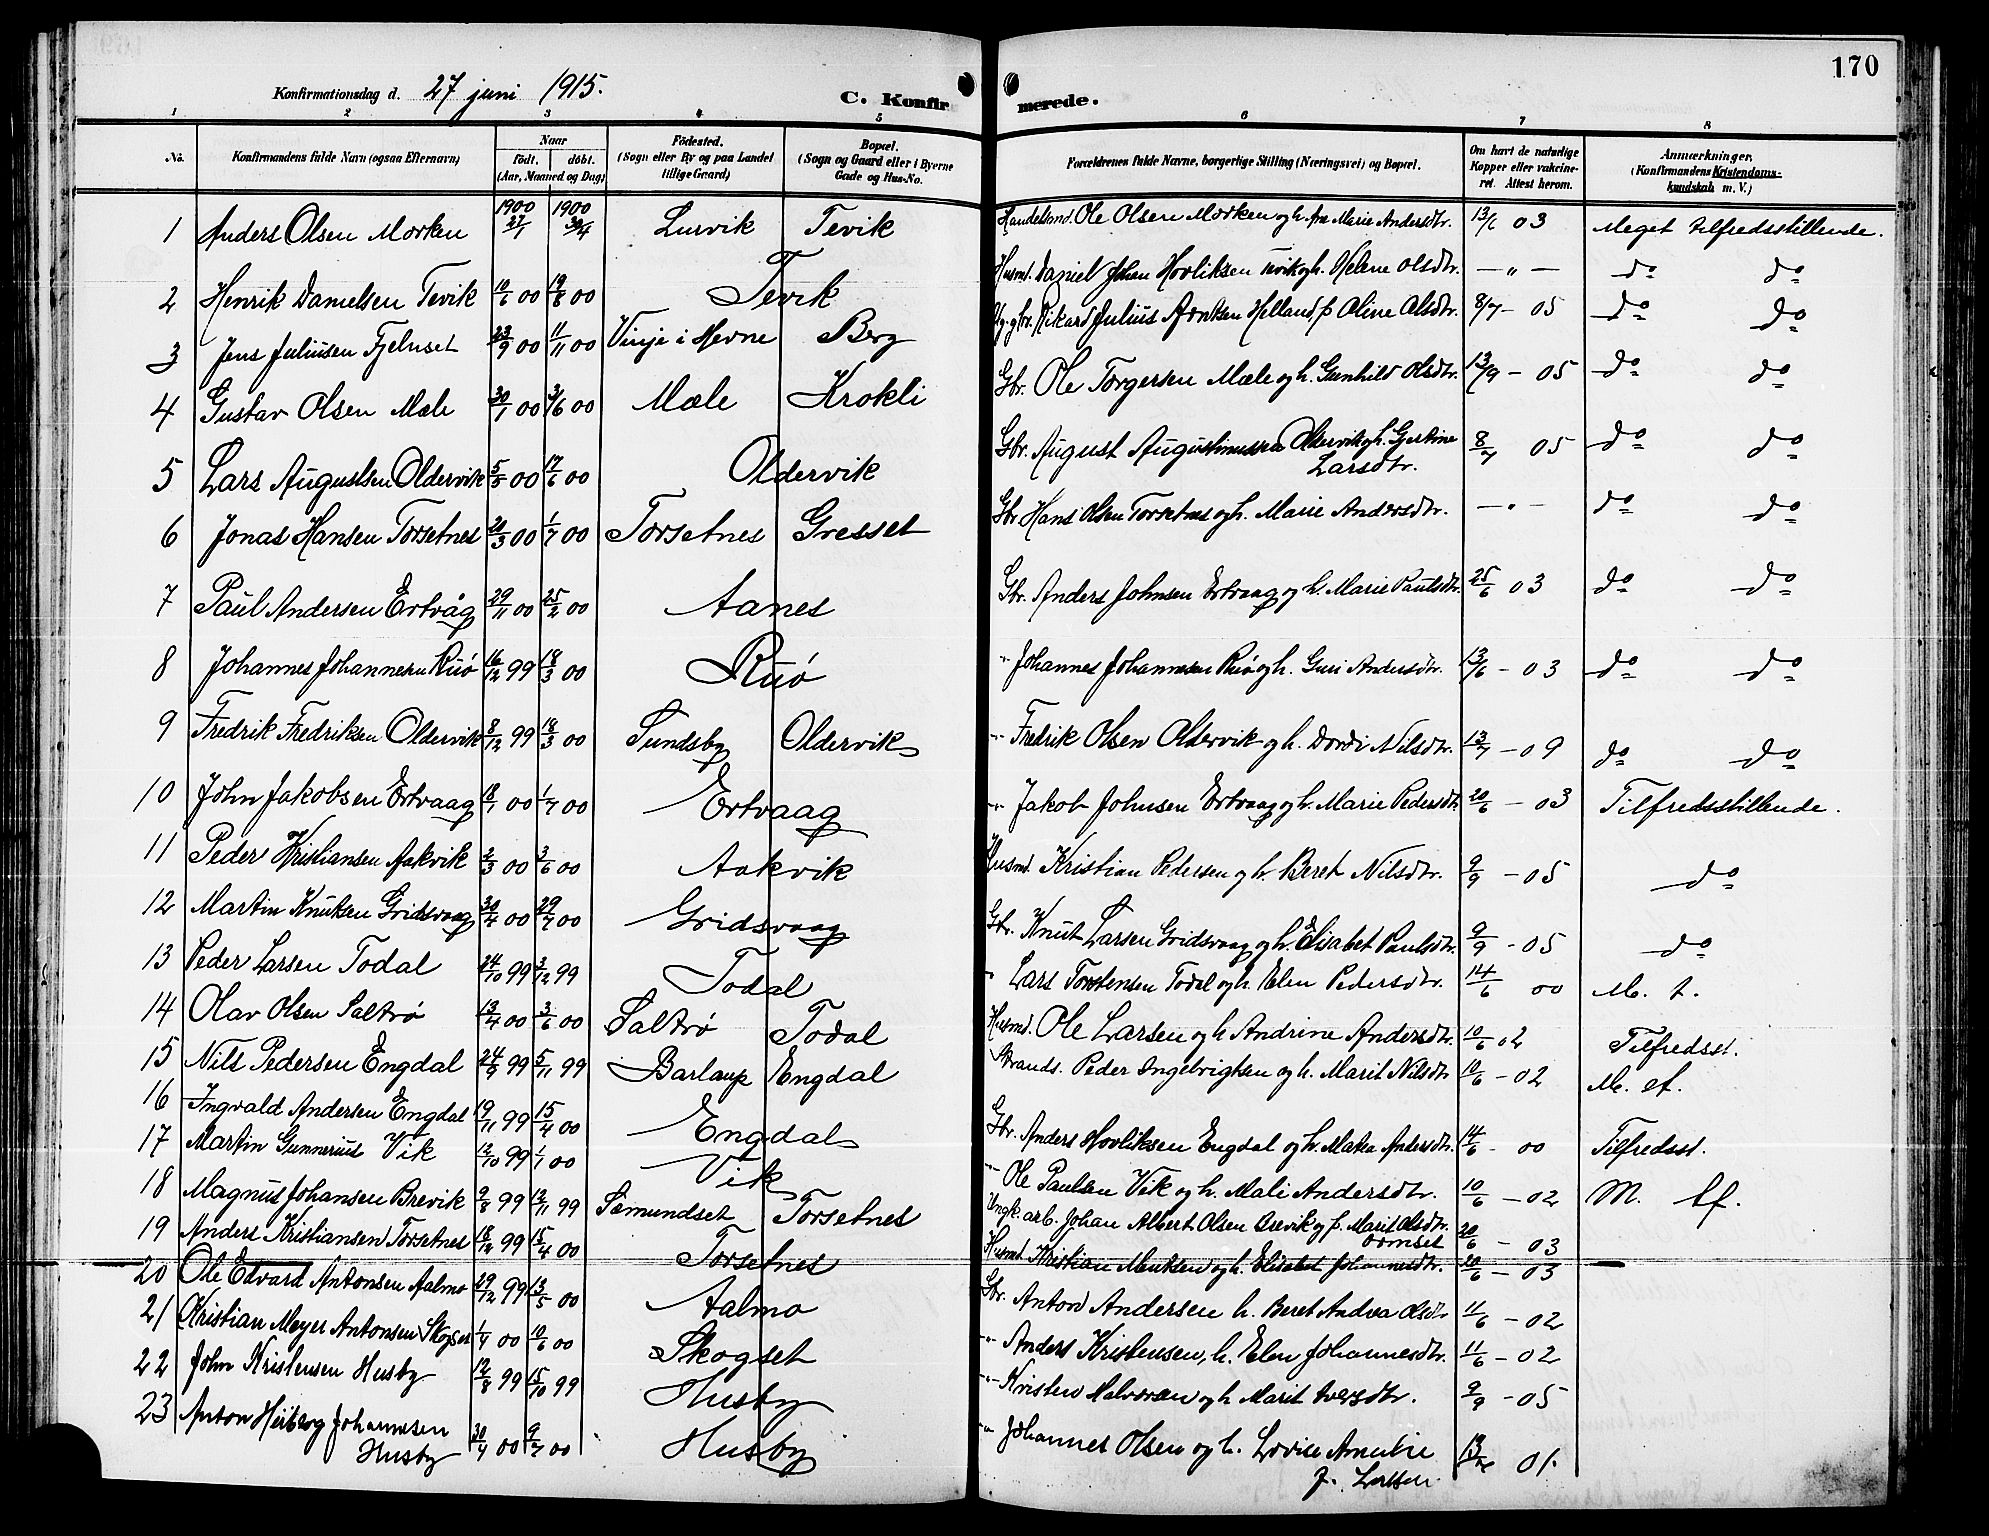 170
Konfirmationsdag d. 27 juni 1915.
C. Konfirmerede.
1 2 3 4 5 6 7 8
No. Konfirmandens fulde Navn (ogsaa Efternavn) Naar født. døbt. (Aar, Maaned og Dag) Fødested. (Sogn eller By og paa Landet tillige Gaard) Bopæl. (Sogn og Gaard eller i Byerne Gade og Hus-No. Forældrenes fulde Navne, borgerlige Stilling (Næringsvei) og Bopæl. Om havt de naturlige Kopper eller vakcineret. Attest herom. Anmærkninger. (Konfirmandens Kristendomskundskab m. V.)
1 Anders Olsen Morken 1900 27/1 1900 30/4 Lurvik Tevik Handelsmd. Ole Olsen Morken og h. Ane Marie Andersdtr. 13/6 03 Meget tilfredsstillende.
2 Henrik Danielsen Tevik 10/6 00 19/8 00 Tevik Husmd. Daniel Johan Hovliksen Tevik og h. Helene Olsdtr. — " — do do
3 Jens Juliusen Fjelnset 23/9 00 11/11 00 Vinje i Hevne Berg Rikard Julius Helland p Oline Olsdtr. 8/7 - 05 do do
4 Gustav Olsen Mæle 30/1 00 3/6 00 Mæle Krokli Gbr. Ole Torgersen Mæle og h. Gunhild Olsdtr. 13/9 - 05 do do
5 Lars Augustsen Oldervik 5/5 00 17/6 00 Oldervik Gbr. August Augustinussen Oldervik og h. Gjertine Larsdtr. 8/7 05 do do
6 Jonas Hansen Torsetnes 20/3 00 1/7 00 Torsetnes Gresset Gbr Hans Olsen Torsetnes og h. Marie Andersdtr. — " — do do
7 Paul Andersen Ertvåg 29/11 00 25/2 00 Aanes Gbr. Anders Johnsen Ertvaag og h. Marie Paulsdtr. 25/6 03 do do
8 Johannes Johannesen Ruø 16/12 99 18/3 00 Ruø " Johannes Johannesen Ruø og h. Guri Andersdtr. 13/6 - 03 do do
9 Fredrik Fredriksen Oldervik 8/12 99 18/3 00 Sundsby Oldervik " Fredrik Olsen Oldervik og h. Dordi Nilsdtr. 13/7 - 09 do do
10 John Jakobsen Ertvaag 18/1 00 1/7 00 Ertvaag " Jakob Johnsen Ertvaag og h. Marie Pedersdtr 20/6 - 03 Tilfredsstillende.
11 Peder Kristiansen Aakvik 2/3 00 3/6 00 Aakvik Husmd. Kristian Pedersen og h. Beret Nilsdtr. 9/9 - 05 do
12 Martin Knutsen Gridsvaag 30/4 00 29/7 00 Gridsvaag Gbr. Knut Larsen Gridsvaag og h. Elisabet Paulsdtr. 9/9 - 05 do
13 Peder Larsen Todal 24/10 99 3/12 99 Todal " Lars Torstensen Todal og h. Elen Pedersdtr. 14/6 00 M. t.
14 Olav Olsen Saltrø 13/4 00 3/6 00 Saltrø Todal Husmd. Ole Larsen og h Andrine Andersdtr. 10/6 02 Tilfredsst.
15 Nils Pedersen Engdal 24/9 99 5/11 99 Barlaup Engdal Strands. Peder Ingebrigtsen og h. Marit Nilsdtr 10/6 - 02 M. tf.
16 Ingvald Andersen Engdal 19/11 99 15/4 00 Engdal Gbr. Anders Hovliksen Engdal og h. Matea Andersdtr. 14/6 - 00 Tilfredsst.
17 Martin Gunnerius Vik 12/10 99 1/1 00 Vik " Ole Paulsen Vik og h. Mali Andersdtr. 10/6 - 02 M. tf.
18 Magnus Johansen Brevik 9/8 99 12/11 99 Sæmundset Torsetnes Ungk. arb. Johan Albert Olsen Brevik og p. Marit Olsdtr. 20/6 - 03
19 Anders Kristiansen Torsetnes 18/12 99 15/4 00 Torsetnes Husmd Kristian og h. Elisabet Johannesdtr. 20/6 - 03
20 Ole Edvard Antonsen Aalmo 29/12 99 13/5 00 Aalmo Gbr. Anton Andersen h. Beret Andrea Olsdtr 11/6 - 02
21 Kristian Meyer Antonsen Skogset 1/4 00 10/6 00 Skogset " Anders Kristensen, h. Elen Johannesdtr. 11/6 - 02
22 John Kristensen Husby 12/8 99 15/10 99 Husby " Kristen Halvorsen og h Marit Iversdtr. 9/9 - 05
23 Anton Heiberg Johannesen Husby 30/4 00 9/7 00 Husby " Johannes Olsen og h. Lovise Amalie J. Larsen 01.